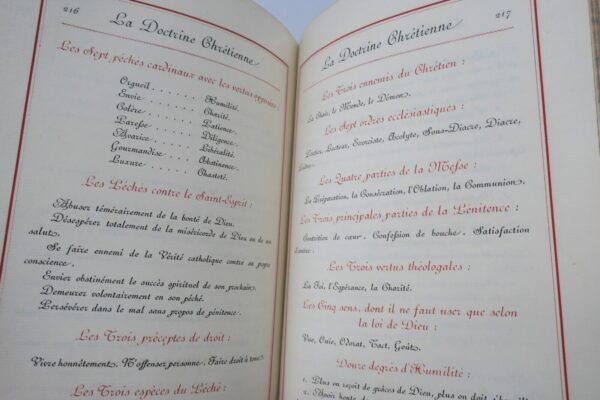 216
La Doctrine Chrétienne
Les Sept péchés cardinaux avec les vertus opposées
Orgueil . . . . . . Humilité.
Envie . . . . . . Charité.
Colère . . . . . . Patience.
Paresse . . . . . . Diligence.
Avarice . . . . . . Libéralité.
Gourmandise . . . . . Abstinence.
Luxure . . . . . . Chasteté.
Les Péchés contre le Saint-Esprit :
Abuser témérairement de la bonté de Dieu.
Désespérer totalement de la miséricorde de Dieu ou de son
salut.
Se faire ennemi de la Vérité catholique contre sa propre
conscience.
Envier obstinément le succès spirituel de son prochain.
Demeurer volontairement en son péché.
Persévérer dans le mal sans propos de pénitence.
Les Trois préceptes de droit :
Vivre honnêtement. N'offenser personne. Faire droit à tous.
Les Trois espèces du Péché :
217
La Doctrine Chrétienne
Les Trois ennemis du Chrétien :
La Chair, le Monde, le Démon.
Les Sept ordres ecclésiastiques :
Lecteur, Exorciste, Acolyte, Sous-Diacre, Diacre,
Les Quatre parties de la Messe :
La Préparation, la Consécration, l'Oblation, la Communion.
Les Trois principales parties de la Pénitence :
Contrition de cœur. Confession de bouche. Satisfaction
Les Trois vertus théologales :
La Foi, l'Espérance, la Charité.
Les Cinq sens, dont il ne faut user que selon
la loi de Dieu :
Vue, Ouïe, Odorat, Tact, Goût.
Douze degrés d'Humilité :
1. Plus on reçoit de grâces de Dieu, plus on doit
2. Avoir honte de